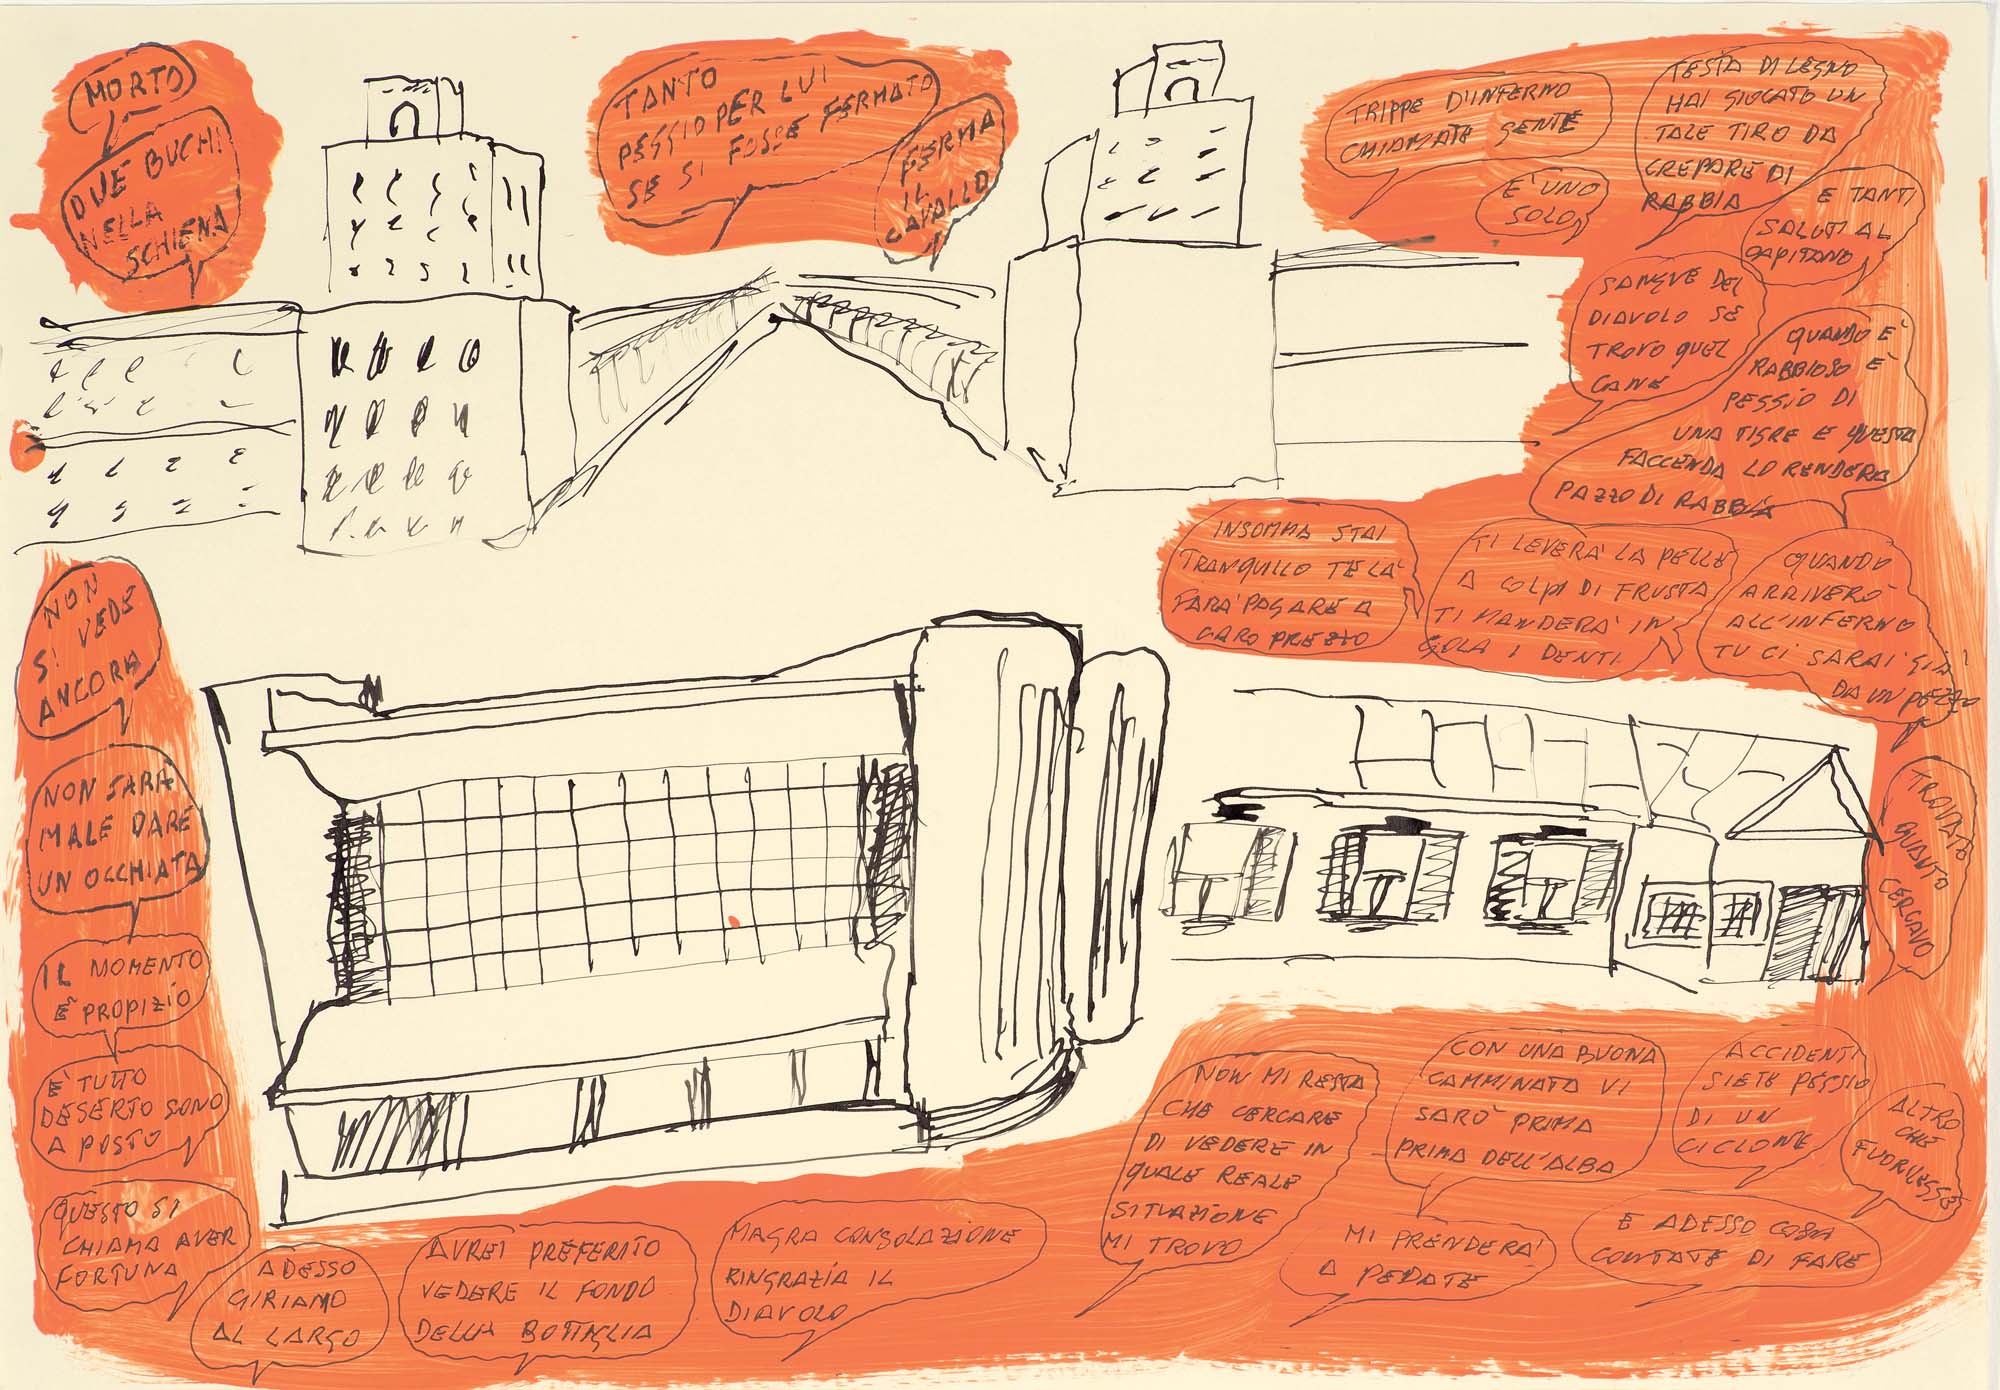 MORTO
DUE BUCHI
NELLA
SCHIENA
TANTO
PEGGIO PER LUI
SE SI FOSSE FERMATO
FERMA
IL
CAVALLO
TRIPPE D'INFERNO
CHIAMATE GENTE
E' UNO
SOLO
TESTA DI LEGNO
HAI GIOCATO UN
TALE TIRO DA
CREPARE DI
RABBIA
E TANTI
SALUTI AL
CAPITANO
SANGUE DEL
DIAVOLO SE
TROVO QUEL
CANE
QUANDO E'
RABBIOSO E'
PEGGIO DI
UNA TIGRE E QUESTA
FACCENDA LO RENDERA
PAZZO DI RABBIA
INSOMMA STAI
TRANQUILLO TE LA'
FARA' PAGARE A
CARO PREZZO
TI LEVERA' LA PELLE
A COLPI DI FRUSTA
TI MANDERA' IN
GOLA I DENTI
QUANDO
ARRIVERO'
ALL'INFERNO
TU CI SARAI GIA'
DA UN PEZZO
TROVATO
QUANTO
CERCAVO
NON
SI VEDE
ANCORA
NON SARA'
MALE DARE
UN OCCHIATA
IL MOMENTO
E' PROPIZIO
E' TUTTO
DESERTO SONO
A POSTO
QUESTO SI
CHIAMA AVER
FORTUNA
ADESSO
GIRIAMO
AL LARGO
AVREI PREFERITO
VEDERE IL FONDO
DELLA BOTTIGLIA
MAGRA CONSOLAZIONE
RINGRAZIA IL
DIAVOLO
NON MI RESTA
CHE CERCARE
DI VEDERE IN
QUALE REALE
SITUAZIONE
MI TROVO
CON UNA BUONA
CAMMINATA VI
SARO' PRIMA
PRIMA DELL'ALBA
MI PRENDERA'
A PEDATE
ACCIDENTI
SIETE PEGGIO
DI UN
CICLONE
ALTRO
CHE
FUORILEGGE
E ADESSO COSA
CONTATE DI FARE